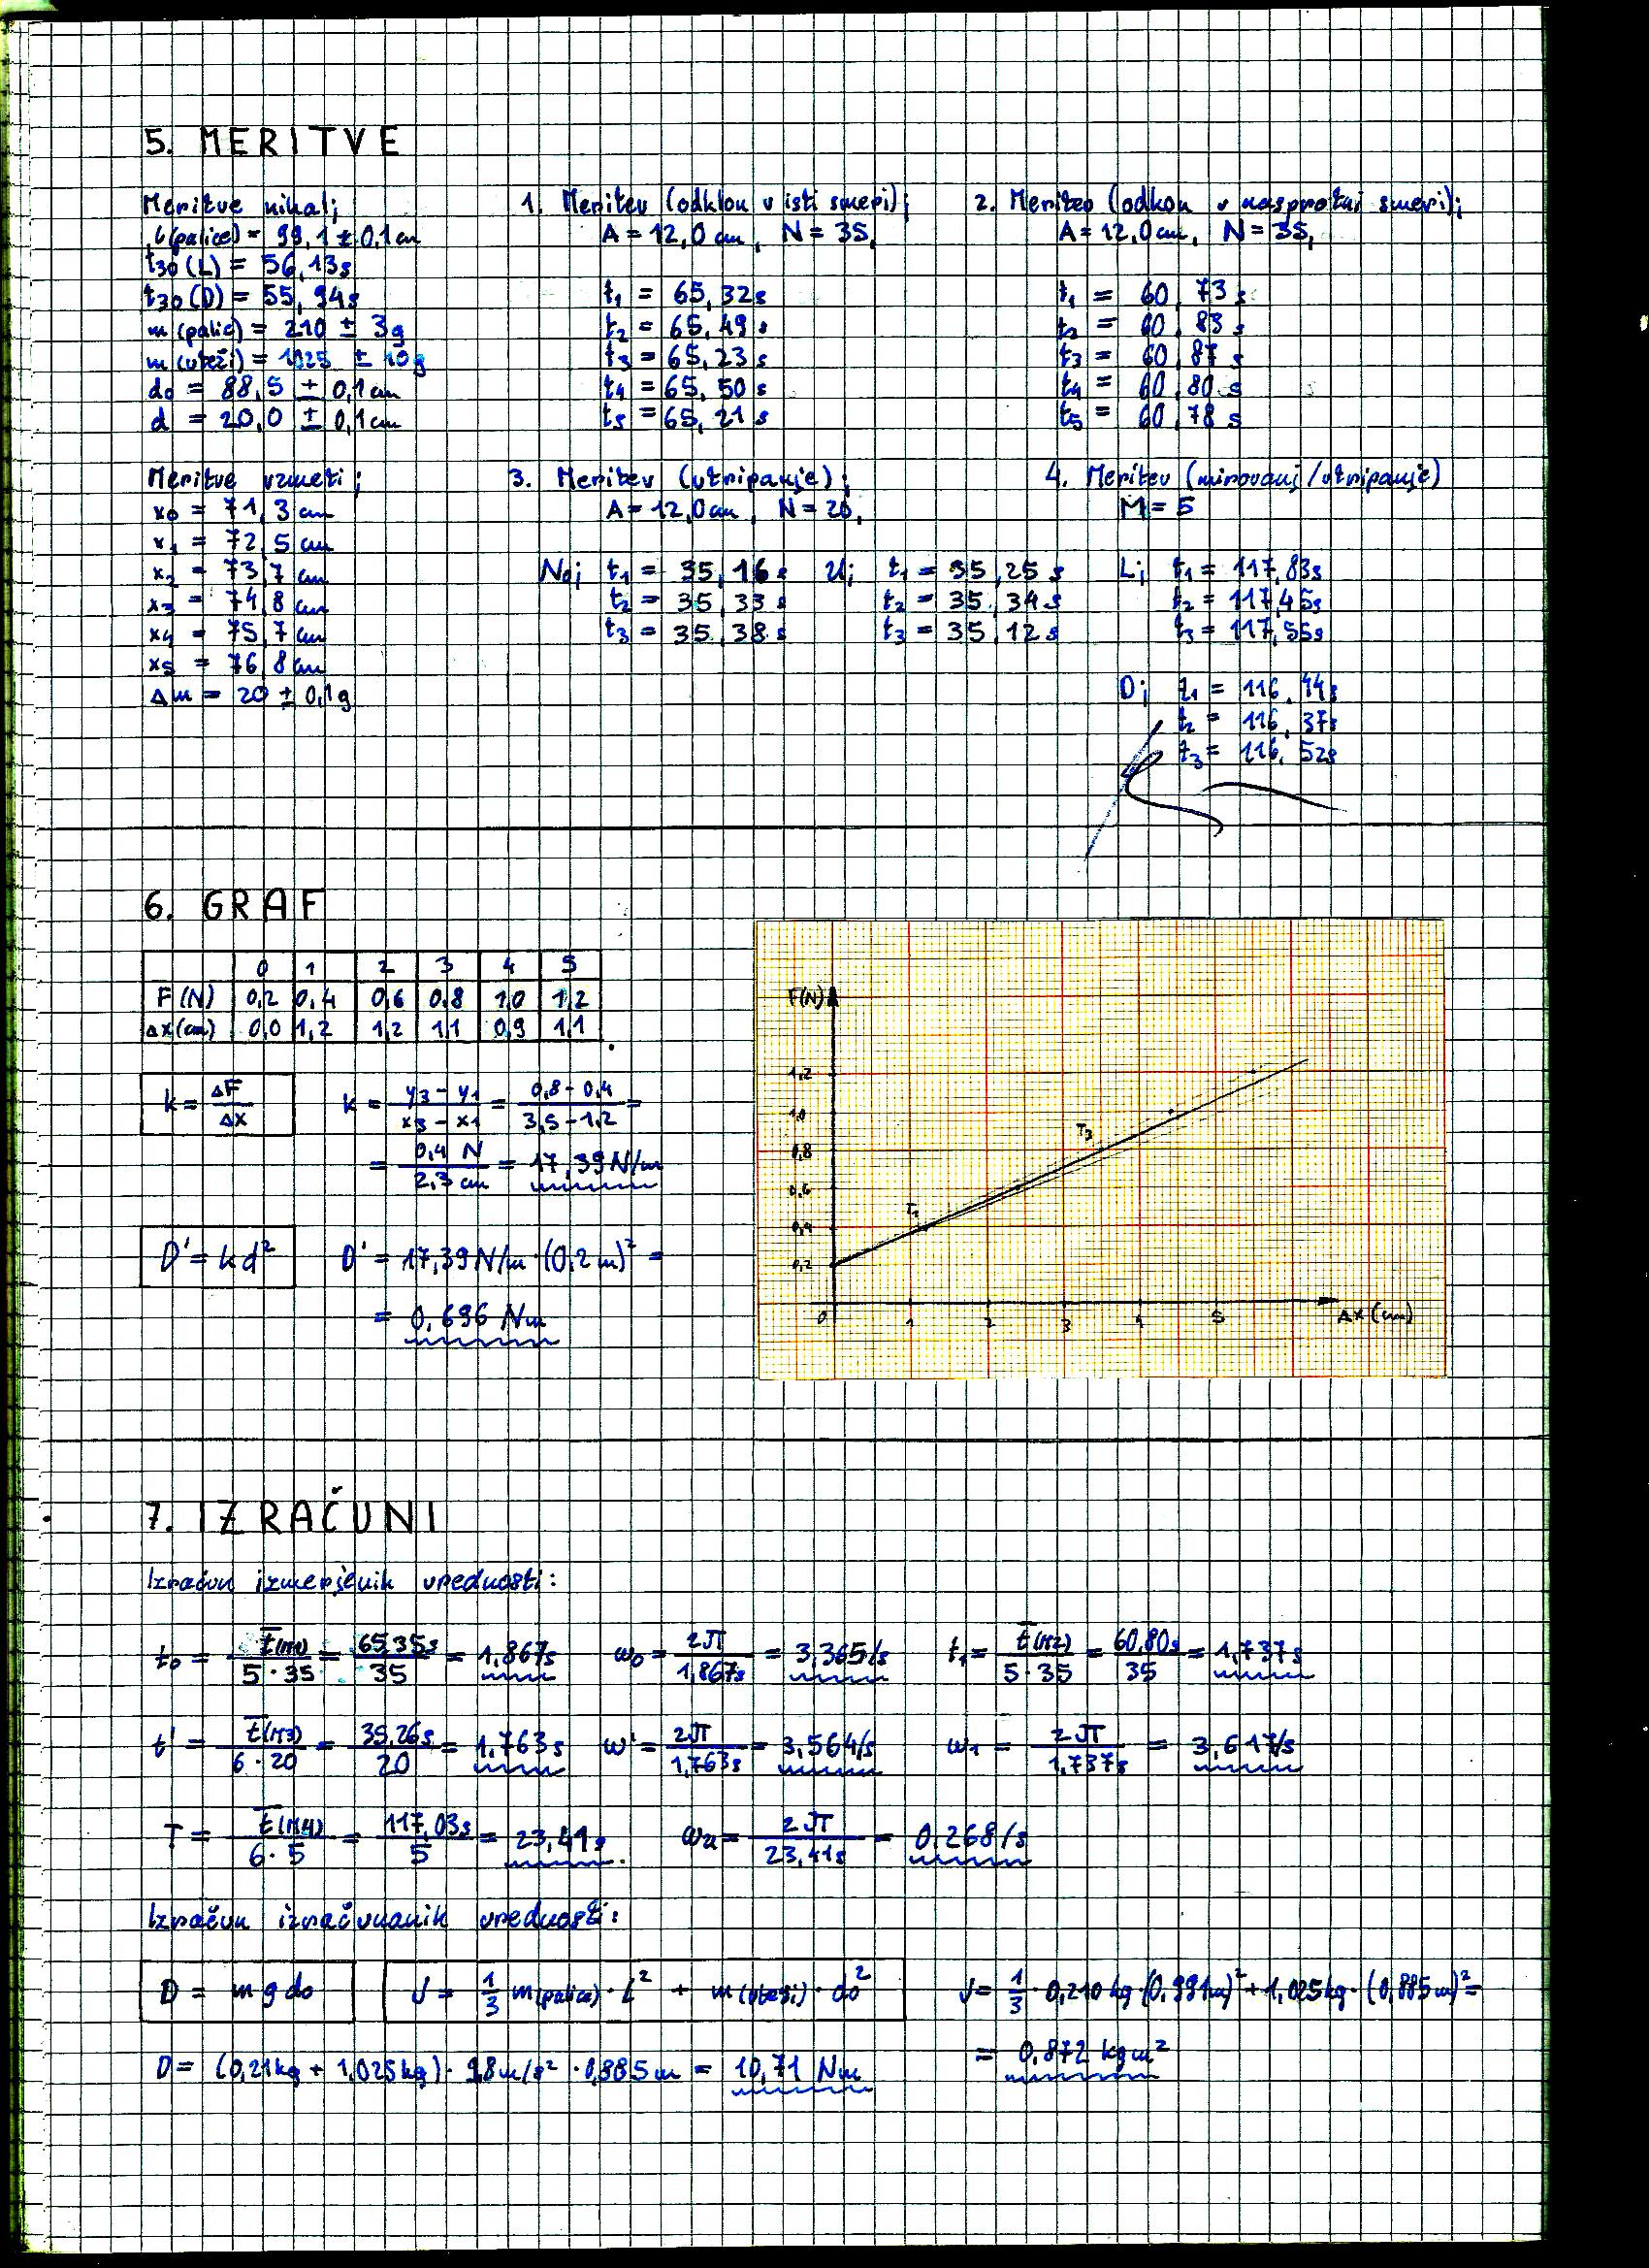 5. MERITVE
Meritve nihal;
l(palice) = 99,1 ± 0,1 cm
t30 (L) = 56,13s
t30 (D) = 55,94s
m (palic) = 210 ± 3g
m (uteži) = 1025 ± 10g
d0 = 88,5 ± 0,1 cm
d = 20,0 ± 0,1 cm
1. Meritev (odklon v isti smeri);
A = 12,0 cm, N = 35,
t1 = 65,32s
t2 = 65,49 s
t3 = 65,23 s
t4 = 65,50 s
t5 = 65,21 s
2. Meritev (odkon v nasprotni smeri);
A = 12,0 cm, N = 35,
t1 = 60,73 s
t2 = 60,83 s
t3 = 60,87 s
t4 = 60,80 s
t5 = 60,78 s
Meritve vzmeti;
x0 = 71,3 cm
x1 = 72,5 cm
x2 = 73,7 cm
x3 = 74,8 cm
x4 = 75,7 cm
x5 = 76,8 cm
Δm = 20 ± 0,1g
3. Meritev (utripanje);
A = 12,0 cm, N = 20,
No; t1 = 35,16 s
t2 = 35,33 s
t3 = 35,38 s
U; t1 = 35,25 s
t2 = 35,34 s
t3 = 35,12 s
4. Meritev (mirovanj/utripanje)
M = 5
L; t1 = 117,83s
t2 = 117,45s
t3 = 117,55s
D; t1 = 116,44s
t2 = 116,37s
t3 = 116,52s
6. GRAF
0 1 2 3 4 5
F (N) 0,2 0,4 0,6 0,8 1,0 1,2
Δx (cm) 0,0 1,2 1,2 1,1 0,9 1,1
k = ΔF/Δx k = (y3 - y1)/(x3 - x1) = (0,8 - 0,4)/(3,5 - 1,2) =
= 0,4 N/2,3 cm = 17,39 N/m
D' = kd² D' = 17,39 N/m · (0,2 m)² =
= 0,696 Nm
F(N)
1,2
1,0
T3
0,8
0,6
T1
0,4
0,2
0 1 2 3 4 5 Δx (cm)
7. IZRAČUNI
Izračun izmerjenih vrednosti:
t0 = t̄(M1)/(5·35) = 65,35s/35 = 1,867s ω0 = 2π/1,867s = 3,365/s t1 = t̄(M2)/(5·35) = 60,80s/35 = 1,737s
t' = t̄(M3)/(6·20) = 35,26s/20 = 1,763s ω' = 2π/1,763s = 3,564/s ω1 = 2π/1,737s = 3,617/s
T = t̄(M4)/(6·5) = 117,03s/5 = 23,41s. ωu = 2π/23,41s = 0,268/s
Izračun izračunanih vrednosti:
D = m g d0 J = 1/3 m(palice) · L² + m(uteži) · d0² J = 1/3 · 0,210 kg · (0,991m)² + 1,025kg · (0,885m)² =
= 0,872 kgm²
D = (0,21kg + 1,025kg) · 9,8m/s² · 0,885m = 10,71 Nm